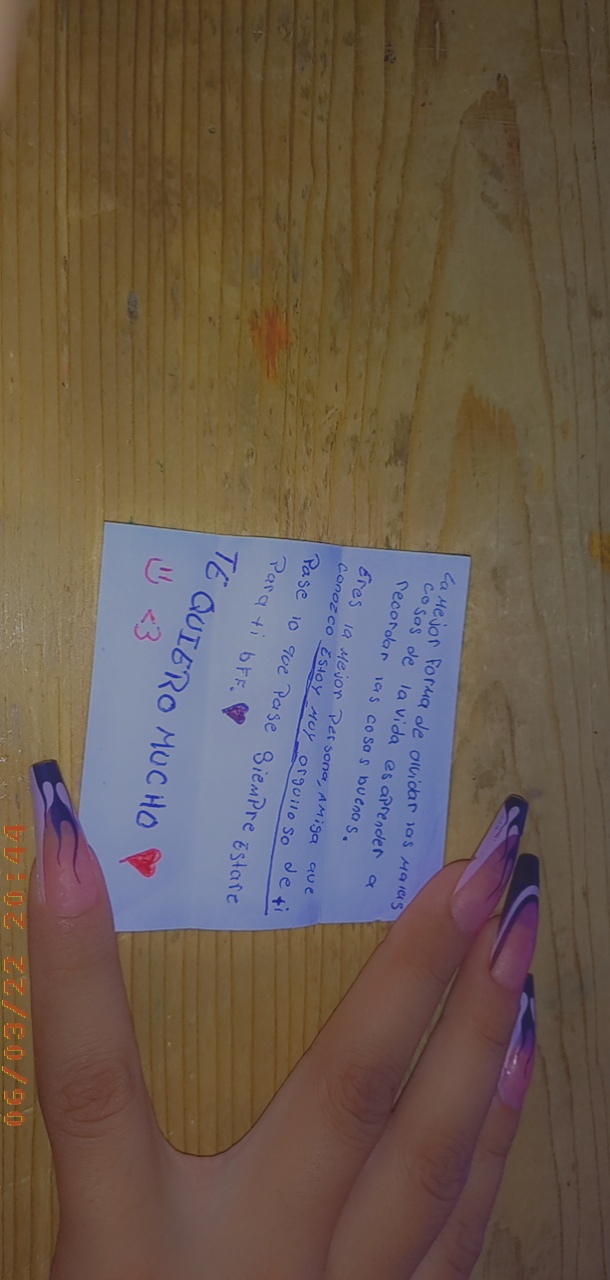 La Mejor Forma de olvidar las Malas
cosas de la vida es aprender a
recordar las cosas buenas.
Eres la Mejor Persona, Amiga que
conozco Estoy Muy orgulloso de ti
Pase lo que Pase Siempre Estare
Para ti bff. ♥
TE QUIERO MUCHO ♥
<3
06/03/22 20:44